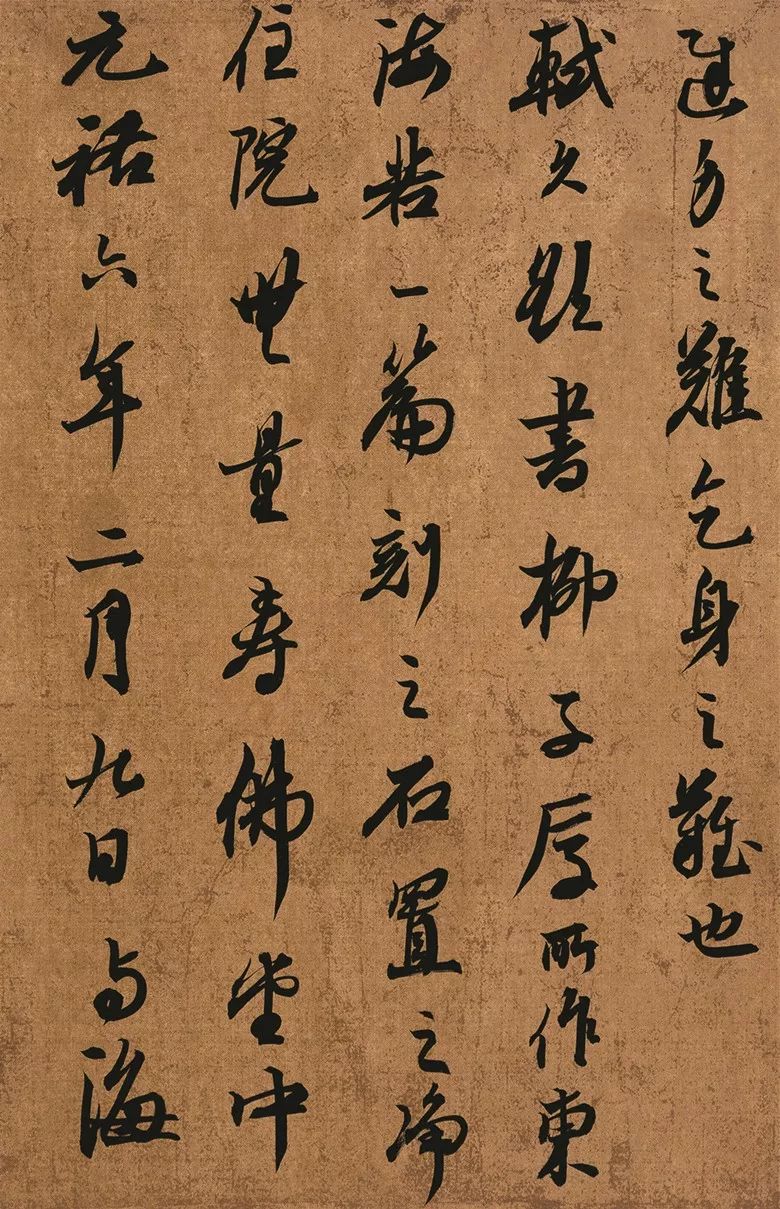 進之難乞身之難也
軾久欲書柳子厚所作東
海若一篇刻之石置之淨
住院無量壽佛堂中
元祐六年二月九日与海